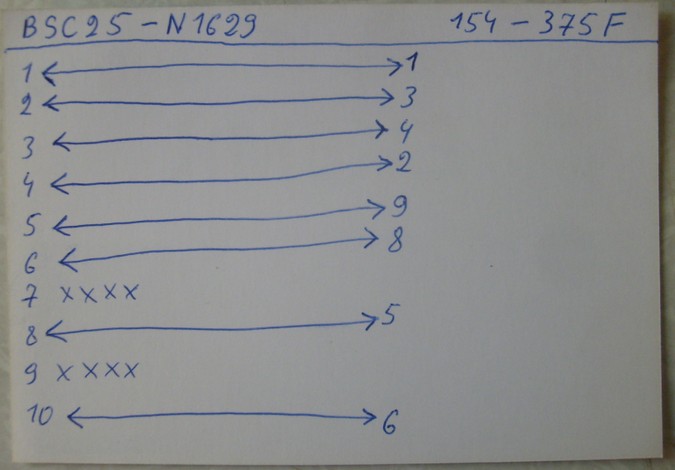 BSC25-N1629 154-375F
1 ↔ 1
2 ↔ 3
3 ↔ 4
4 ↔ 2
5 ↔ 9
6 ↔ 8
7 xxxx
8 ↔ 5
9 xxxx
10 ↔ 6